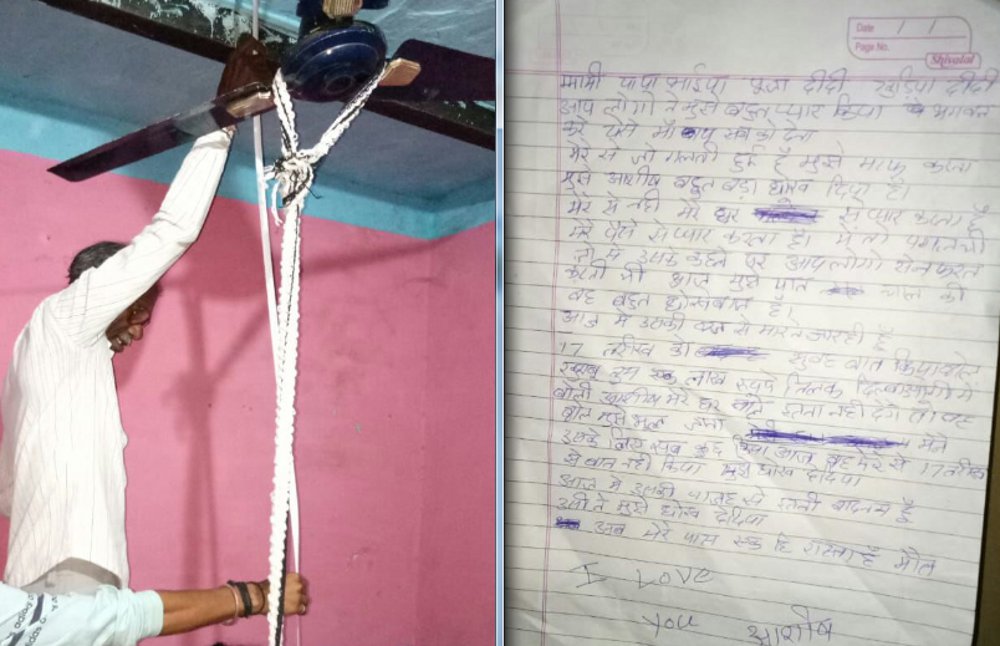 Date / /
Page No.
Shivalal
मम्मी पापा भाईया पूजा दीदी दीदी
आप लोगो ने मुझे बहुत प्यार किया भगवान
करे ऐसे माँ बाप सब को देना
मेरे से जो गलती हुई है मुझे माफ करना
मुझे आशीष बहुत बड़ा धोख दिया है।
मेरे से नही मेरे घर से प्यार करता है
मेरे पैसे से प्यार करता है। में तो पागल थी
जो में उसके कहने पर आप लोगो से नफरत
करती थी आज मुझे चाल की
वह बहुत धोखेबाज है।
आज में उसकी वजह से मरने जा रही हूँ
17 तारीख को सुबह बात किया बोल
तुम लाख रुपये तिलक
बोली आशीष मेरे घर वाले इतना नही देंगे तो वह
बोल मुझे भूल जाना मैने
उसके लिए सब कुछ किया आज वह मेरे से 17 तारीख
से बात नही किया मुझे धोख देदिया
आज में उसकी वजह से इतनी बदनाम हूँ
उसी ने मुझे धोख देदिया
अब मेरे पास एक हि रास्ता है मौत
I LOVE
you आशीष